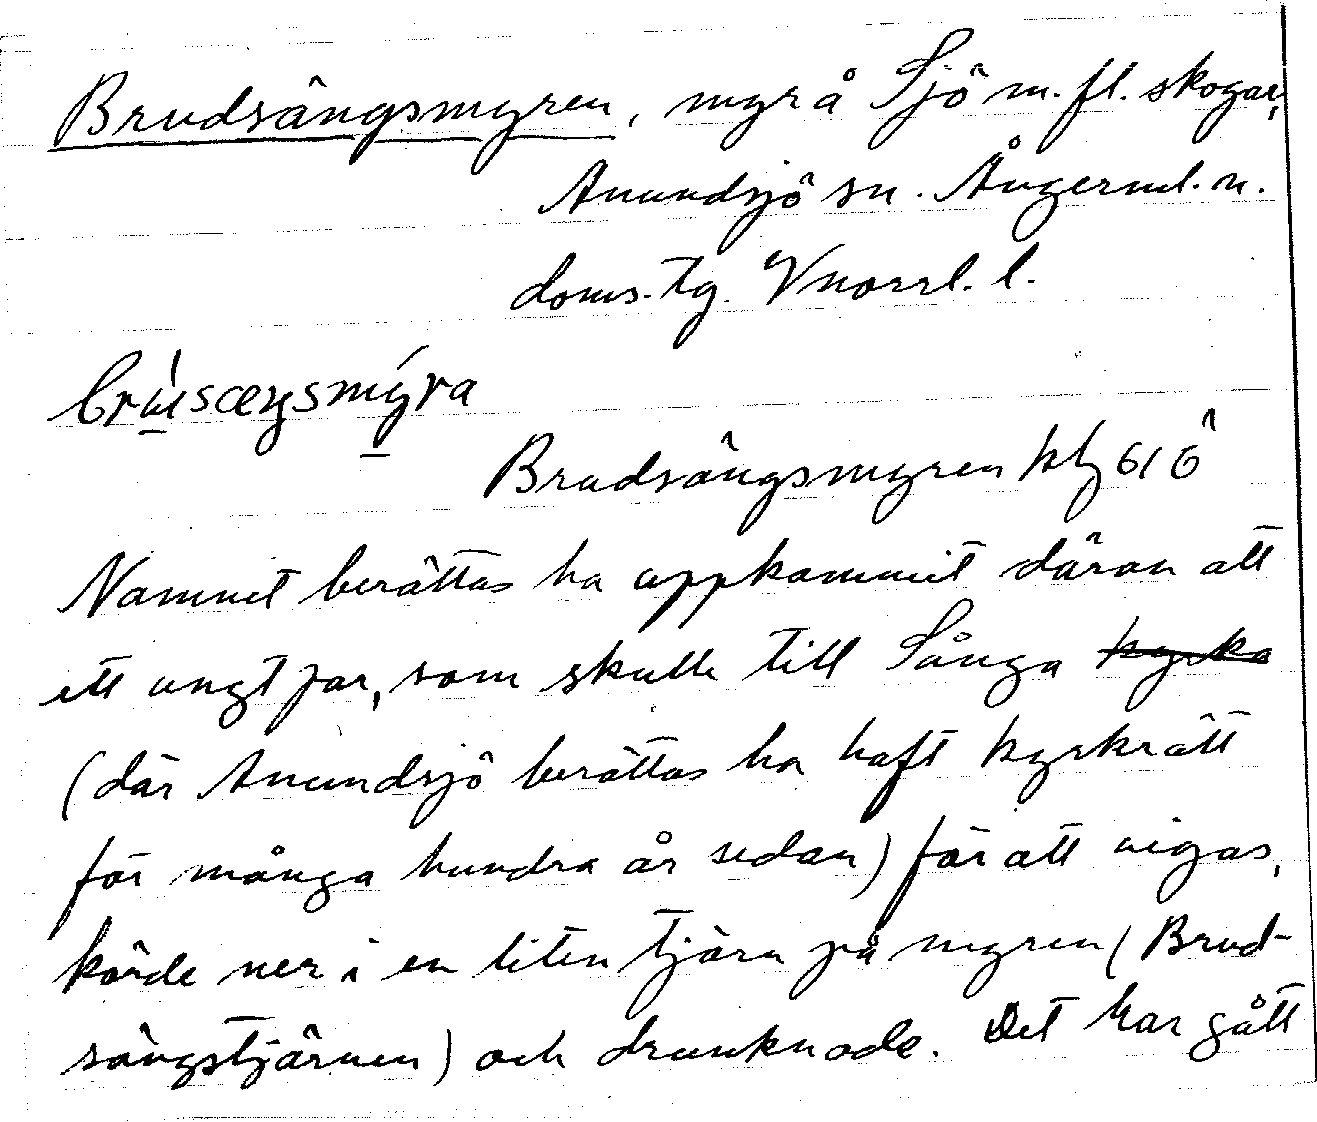 Brudsängsmyren, myr å Sjö m. fl. skogar,
Anundsjö sn. Ångerml. n.
doms. tg. Vnorrl. l.
Brudsängsmyren kbl 616
Namnet berättas ha uppkommit däran att
ett ungt par, som skulle till Sånga kyrka
(där Anundsjö berättas ha haft kyrkrätt
för många hundra år sedan) för att vigas,
körde ner i en liten tjärn på myren (Brud-
sängstjärnen) och drunknade. Det har gått